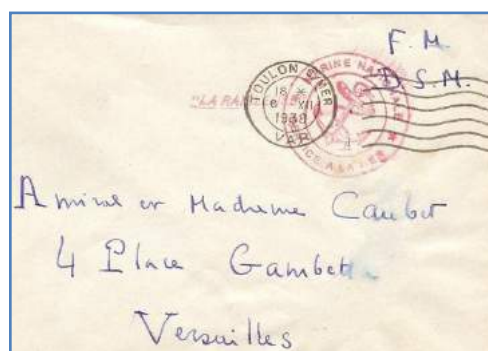 F. M.
D. S. M.
"LA RA
TOULON S MER
18 X
6 XII
1938
VAR
MARINE NATIONALE
Amiral et Madame Caubet
4 Place Gambetta
Versailles